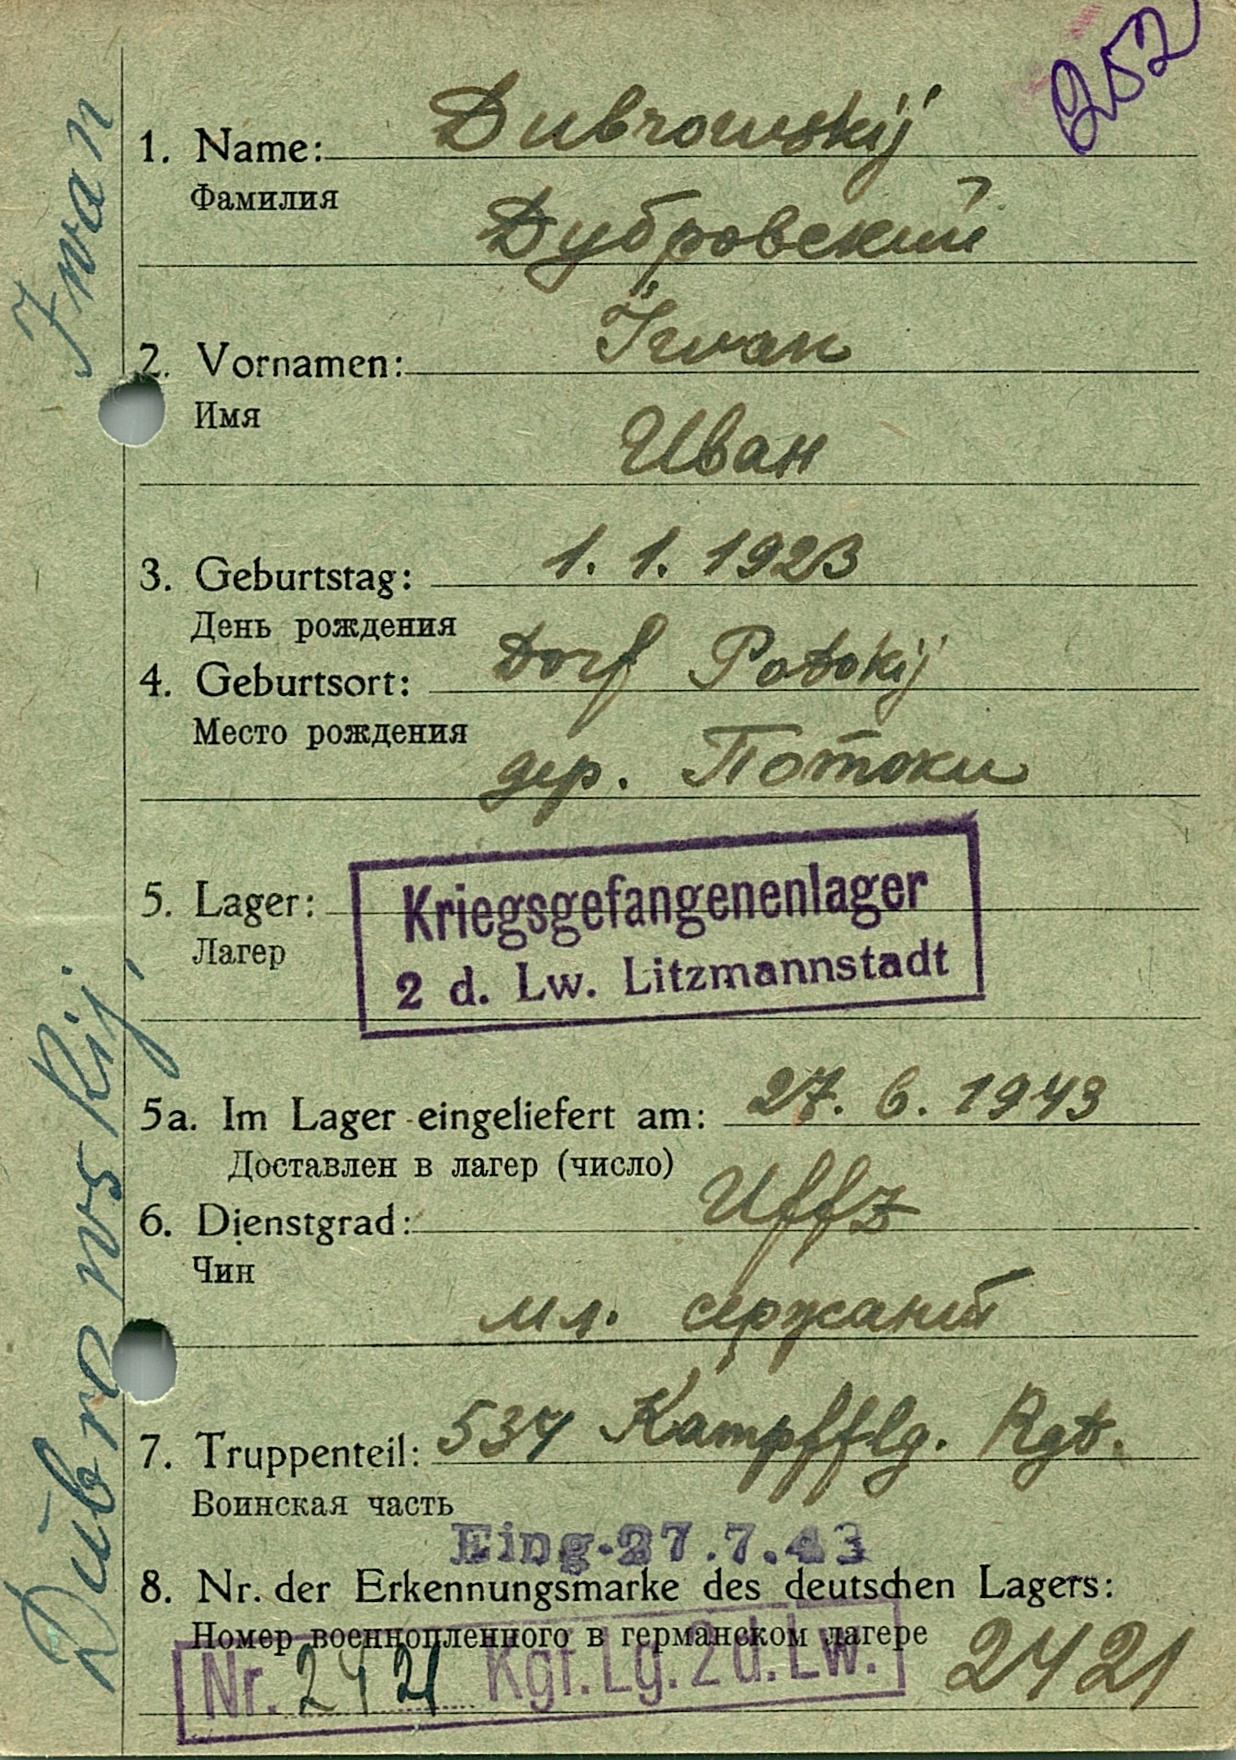 252
1. Name: Dubrowskij
Фамилия
Дубровский
2. Vornamen: Iwan
Имя
Иван
3. Geburtstag: 1. 1. 1923
День рождения
4. Geburtsort: Dorf Potokij
Место рождения
дер. Потоки
5. Lager: Kriegsgefangenenlager
Лагер
2 d. Lw. Litzmannstadt
5a. Im Lager eingeliefert am: 27. 6. 1943
Доставлен в лагер (число)
6. Dienstgrad: Uffz
Чин
мл. сержант
7. Truppenteil: 537 Kampfflg. Rgt.
Воинская часть
Eing. 27.7.43
8. Nr. der Erkennungsmarke des deutschen Lagers:
Номер военнопленного в германском лагере
2421
Nr. 2421 Kgf. Lg. 2 d. Lw.
Dubrowskij, Iwan